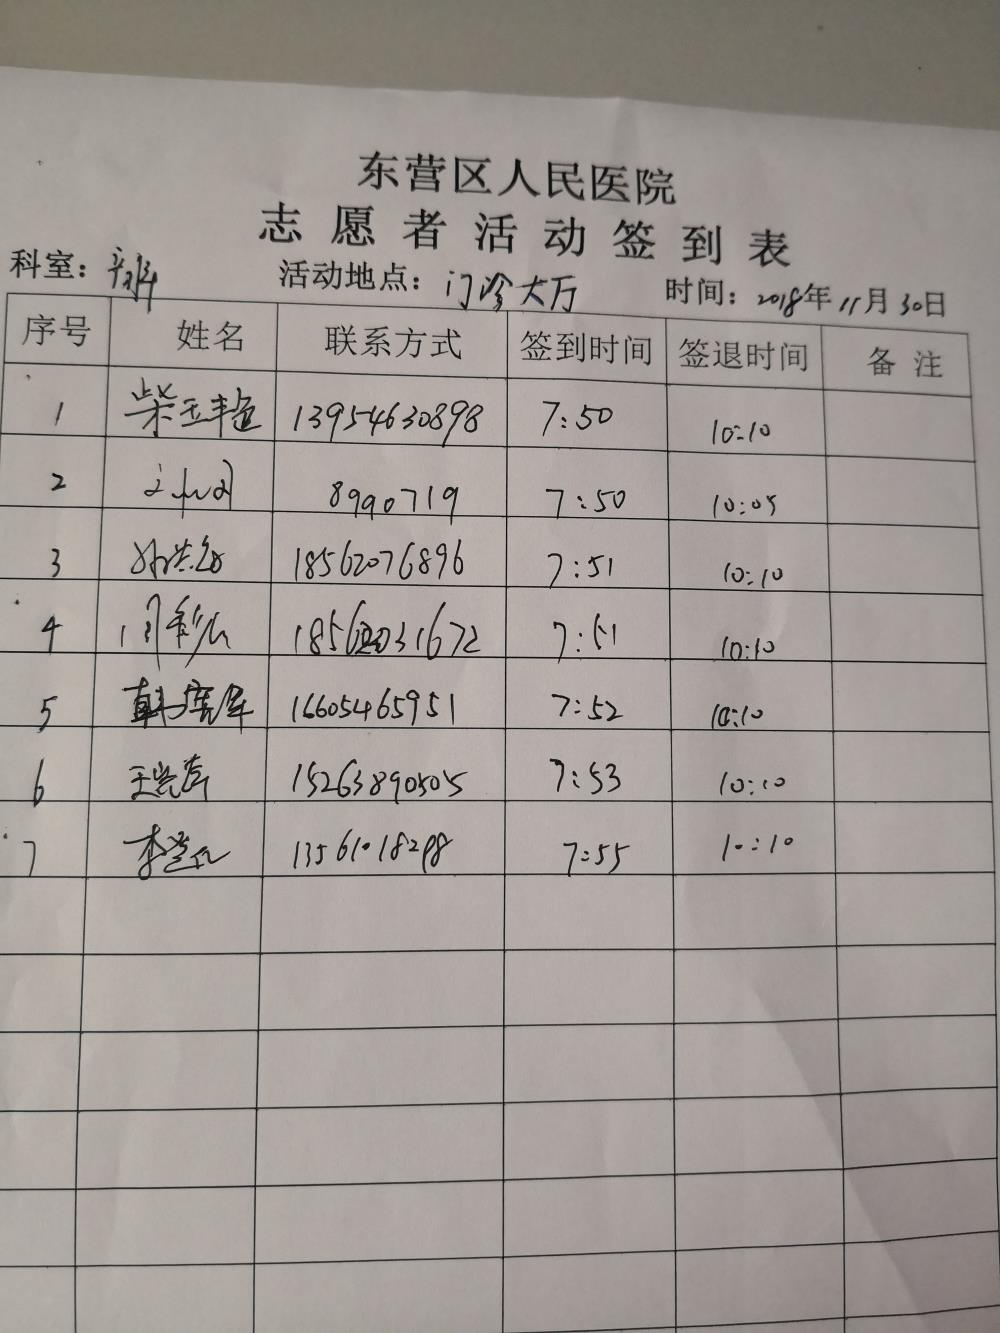 东营区人民医院
志愿者活动签到表
科室： 活动地点：门诊大厅 时间：2018年11月30日
序号 姓名 联系方式 签到时间 签退时间 备注
1 柴玉 13954630898 7:50 10:10
2 8990719 7:50 10:05
3 18562076896 7:51 10:10
4 7:51 10:10
5 16605465951 7:52 10:10
6 王 15263890505 7:53 10:10
7 李 13561018298 7:55 10:10